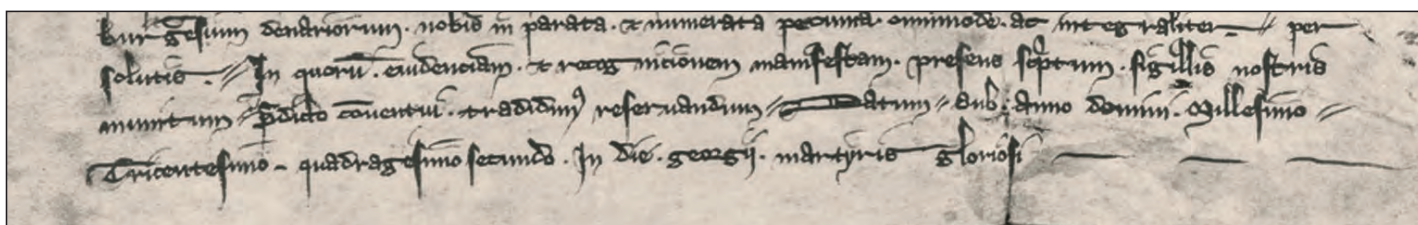 burgesium denariorum. nobis in parata. & numerata pecunia. omnimode. ac integraliter. // per
solutis. // In quorū. euidenciam. & recognicionem manifestam. presens scͥptum. sigillis nostris
munitum // p̄dicto cōuentui. tradidimꝰ reseruandum // Datum // sub. anno domini. Millesimo //
Tricentesimo - quadragesimo secundo. In die. georgij. martyris gloriosi